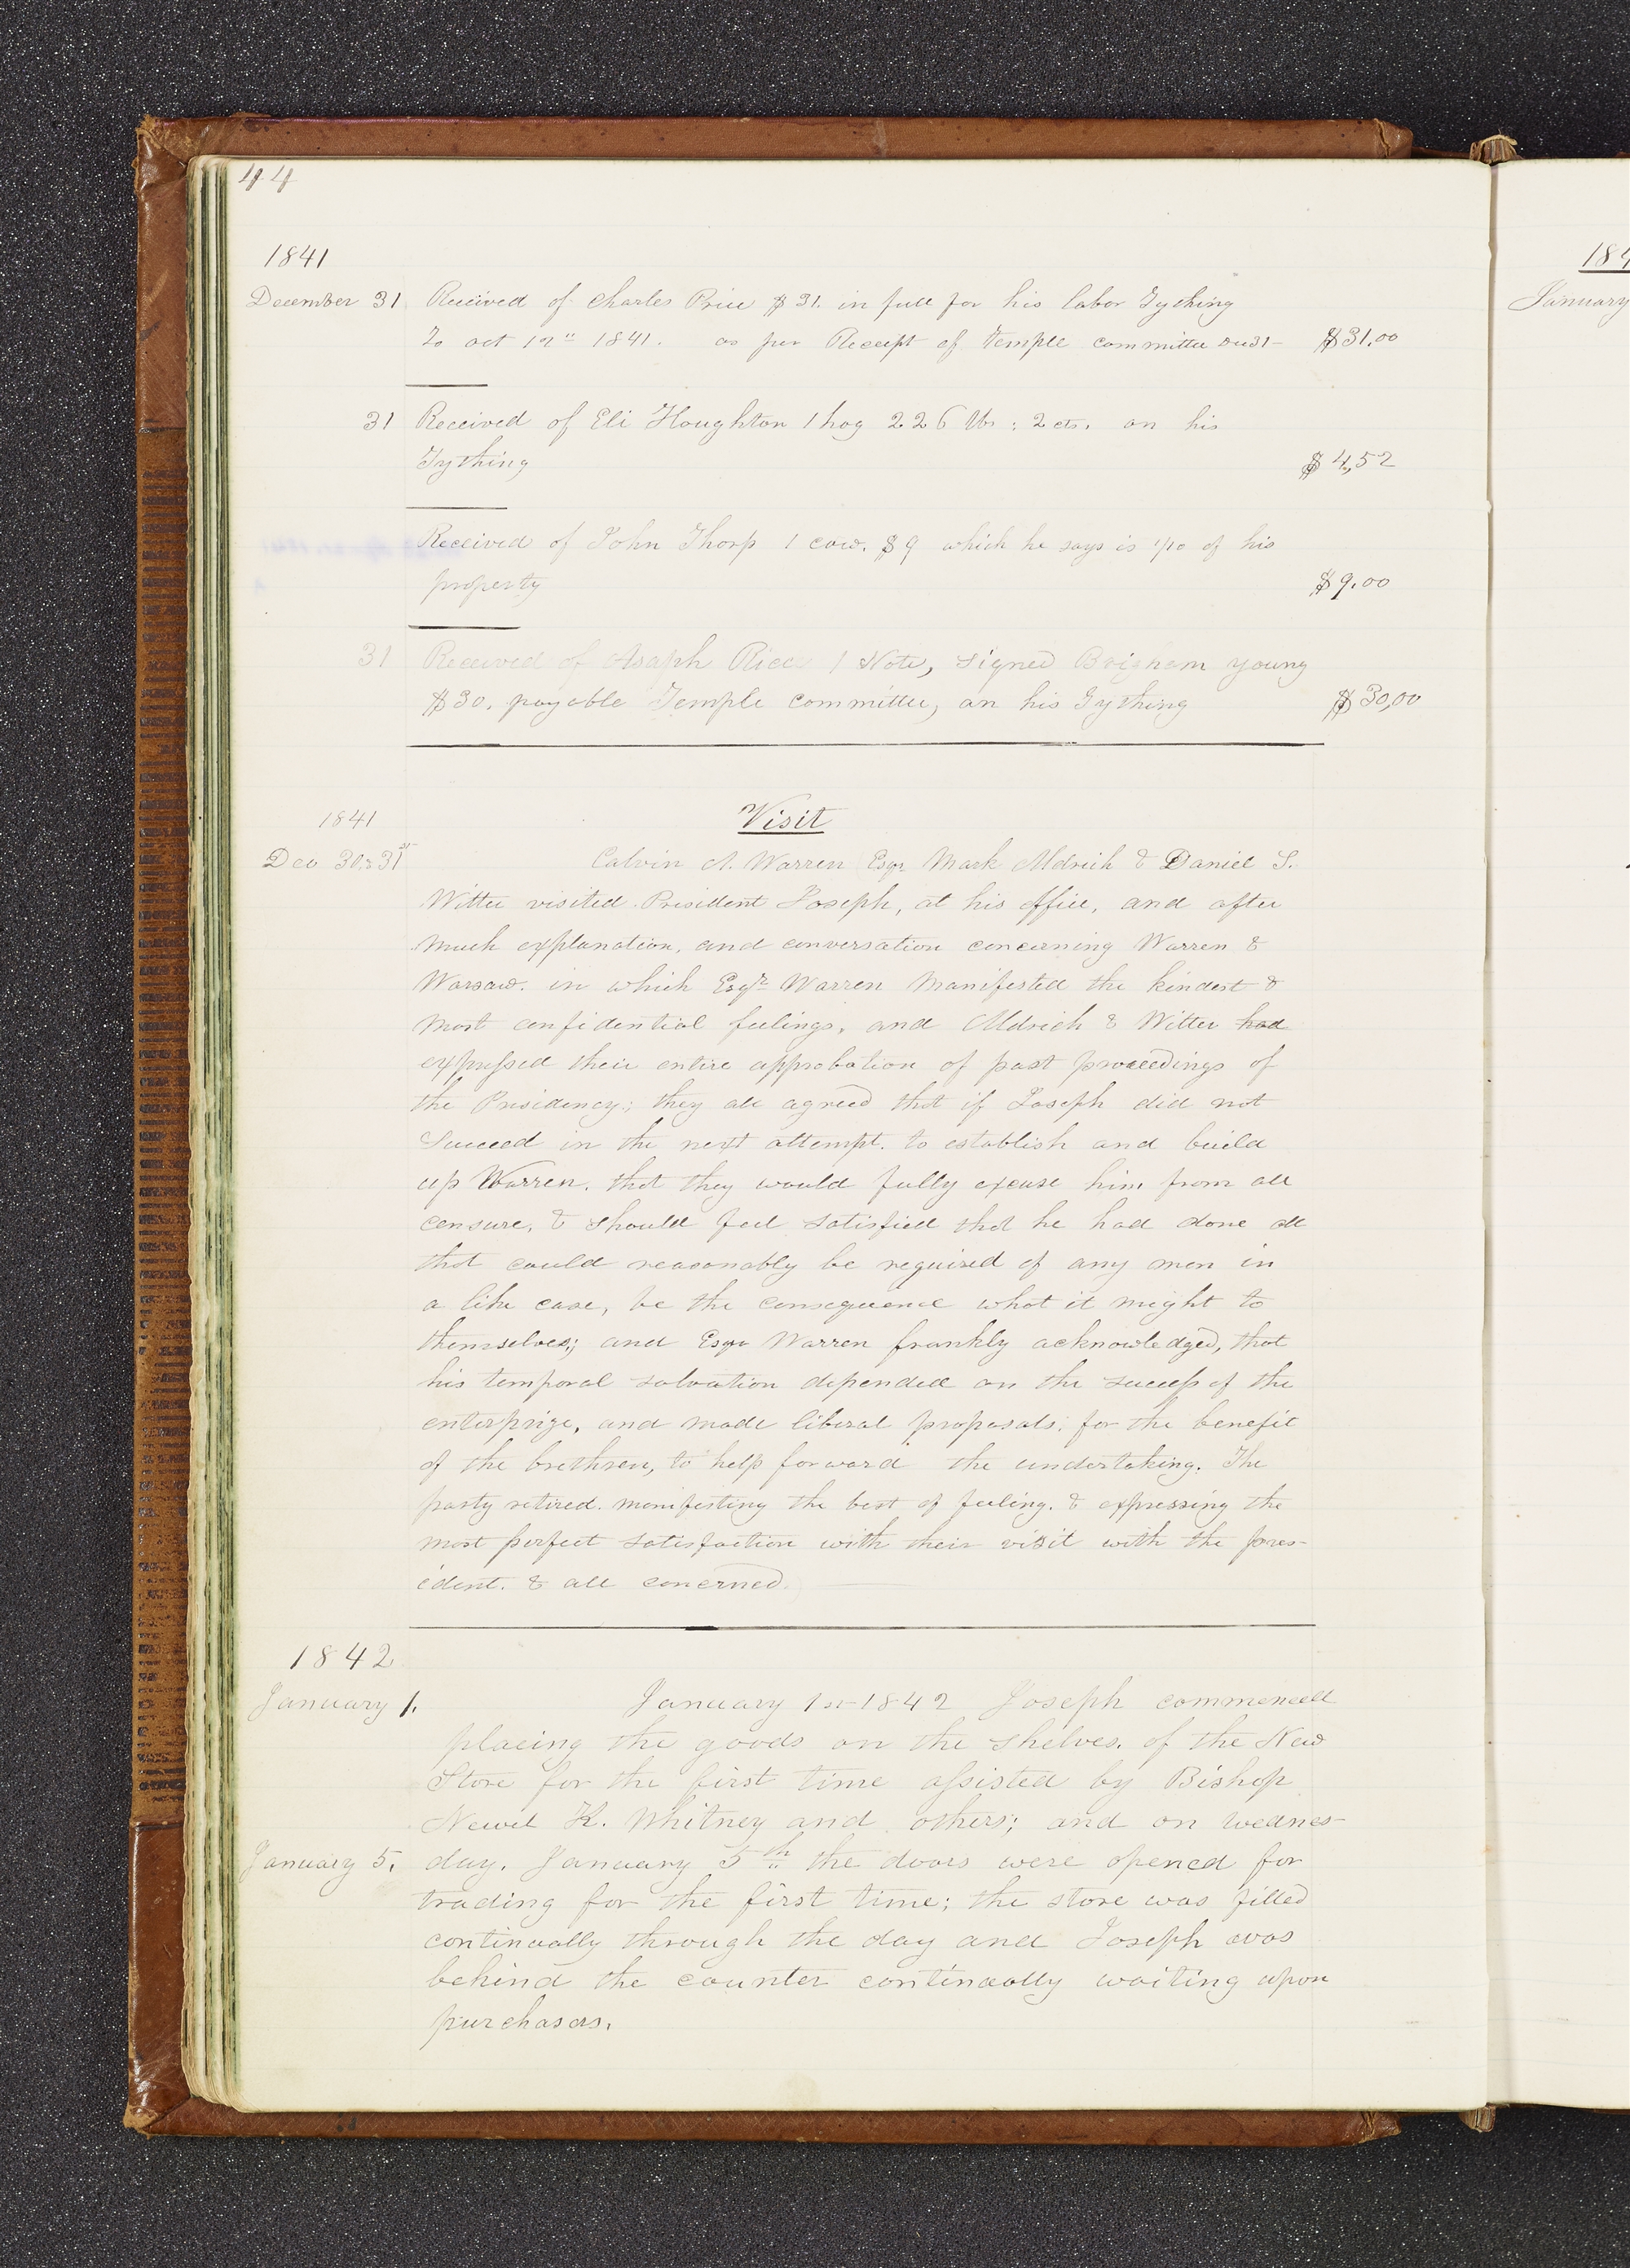 44
1841
December 31 Received of Charles Price $31. in full for his labor Tything
To oct 1841. as per Receipt of Temple committee $31.00
31 Received of Eli Houghton 1 hog 226 lbs: 2 cts. on his
Tything $4,52
Received of John Thorp 1 cow. $9 which he says is 1/10 of his
property $9.00
31 Received of Asaph Rice 1 Note, signed Brigham young
$30. payable Temple committee, on his Tything $30,00
1841 Visit
Dec 30 & 31 Calvin A. Warren Esqr Mark Aldrich & Daniel S.
Witter visited President Joseph, at his office, and after
much explanation, and conversation concerning Warren &
Warsaw. in which Esqr Warren manifested the kindest &
most confidential feelings, and Aldrich & Witter had
expressed their entire approbation of past proceedings of
the Presidency; they all agreed that if Joseph did not
Succeed in the next attempt. to establish and build
up Warren. that they would fully excuse him from all
censure, & should feel satisfied that he had done all
that could reasonably be required of any man in
a like case, be the consequence what it might to
themselves; and Esqr Warren frankly acknowledged, that
his temporal salvation depended on the success of the
enterprize, and made liberal proposals. for the benefit
of the brethren, to help forward the undertaking. The
party retired. manifesting the best of feeling. & expressing the
most perfect satisfaction with their visit with the pres-
ident. & all concerned.
1842
January 1. January 1st 1842 Joseph commenced
placing the goods on the shelves. of the New
Store for the first time assisted by Bishop
Newel K. Whitney and others; and on wednes-
January 5. day. January 5th the doors were opened for
trading for the first time; the store was filled
continually through the day and Joseph was
behind the counter continually waiting upon
purchasers.
184
January